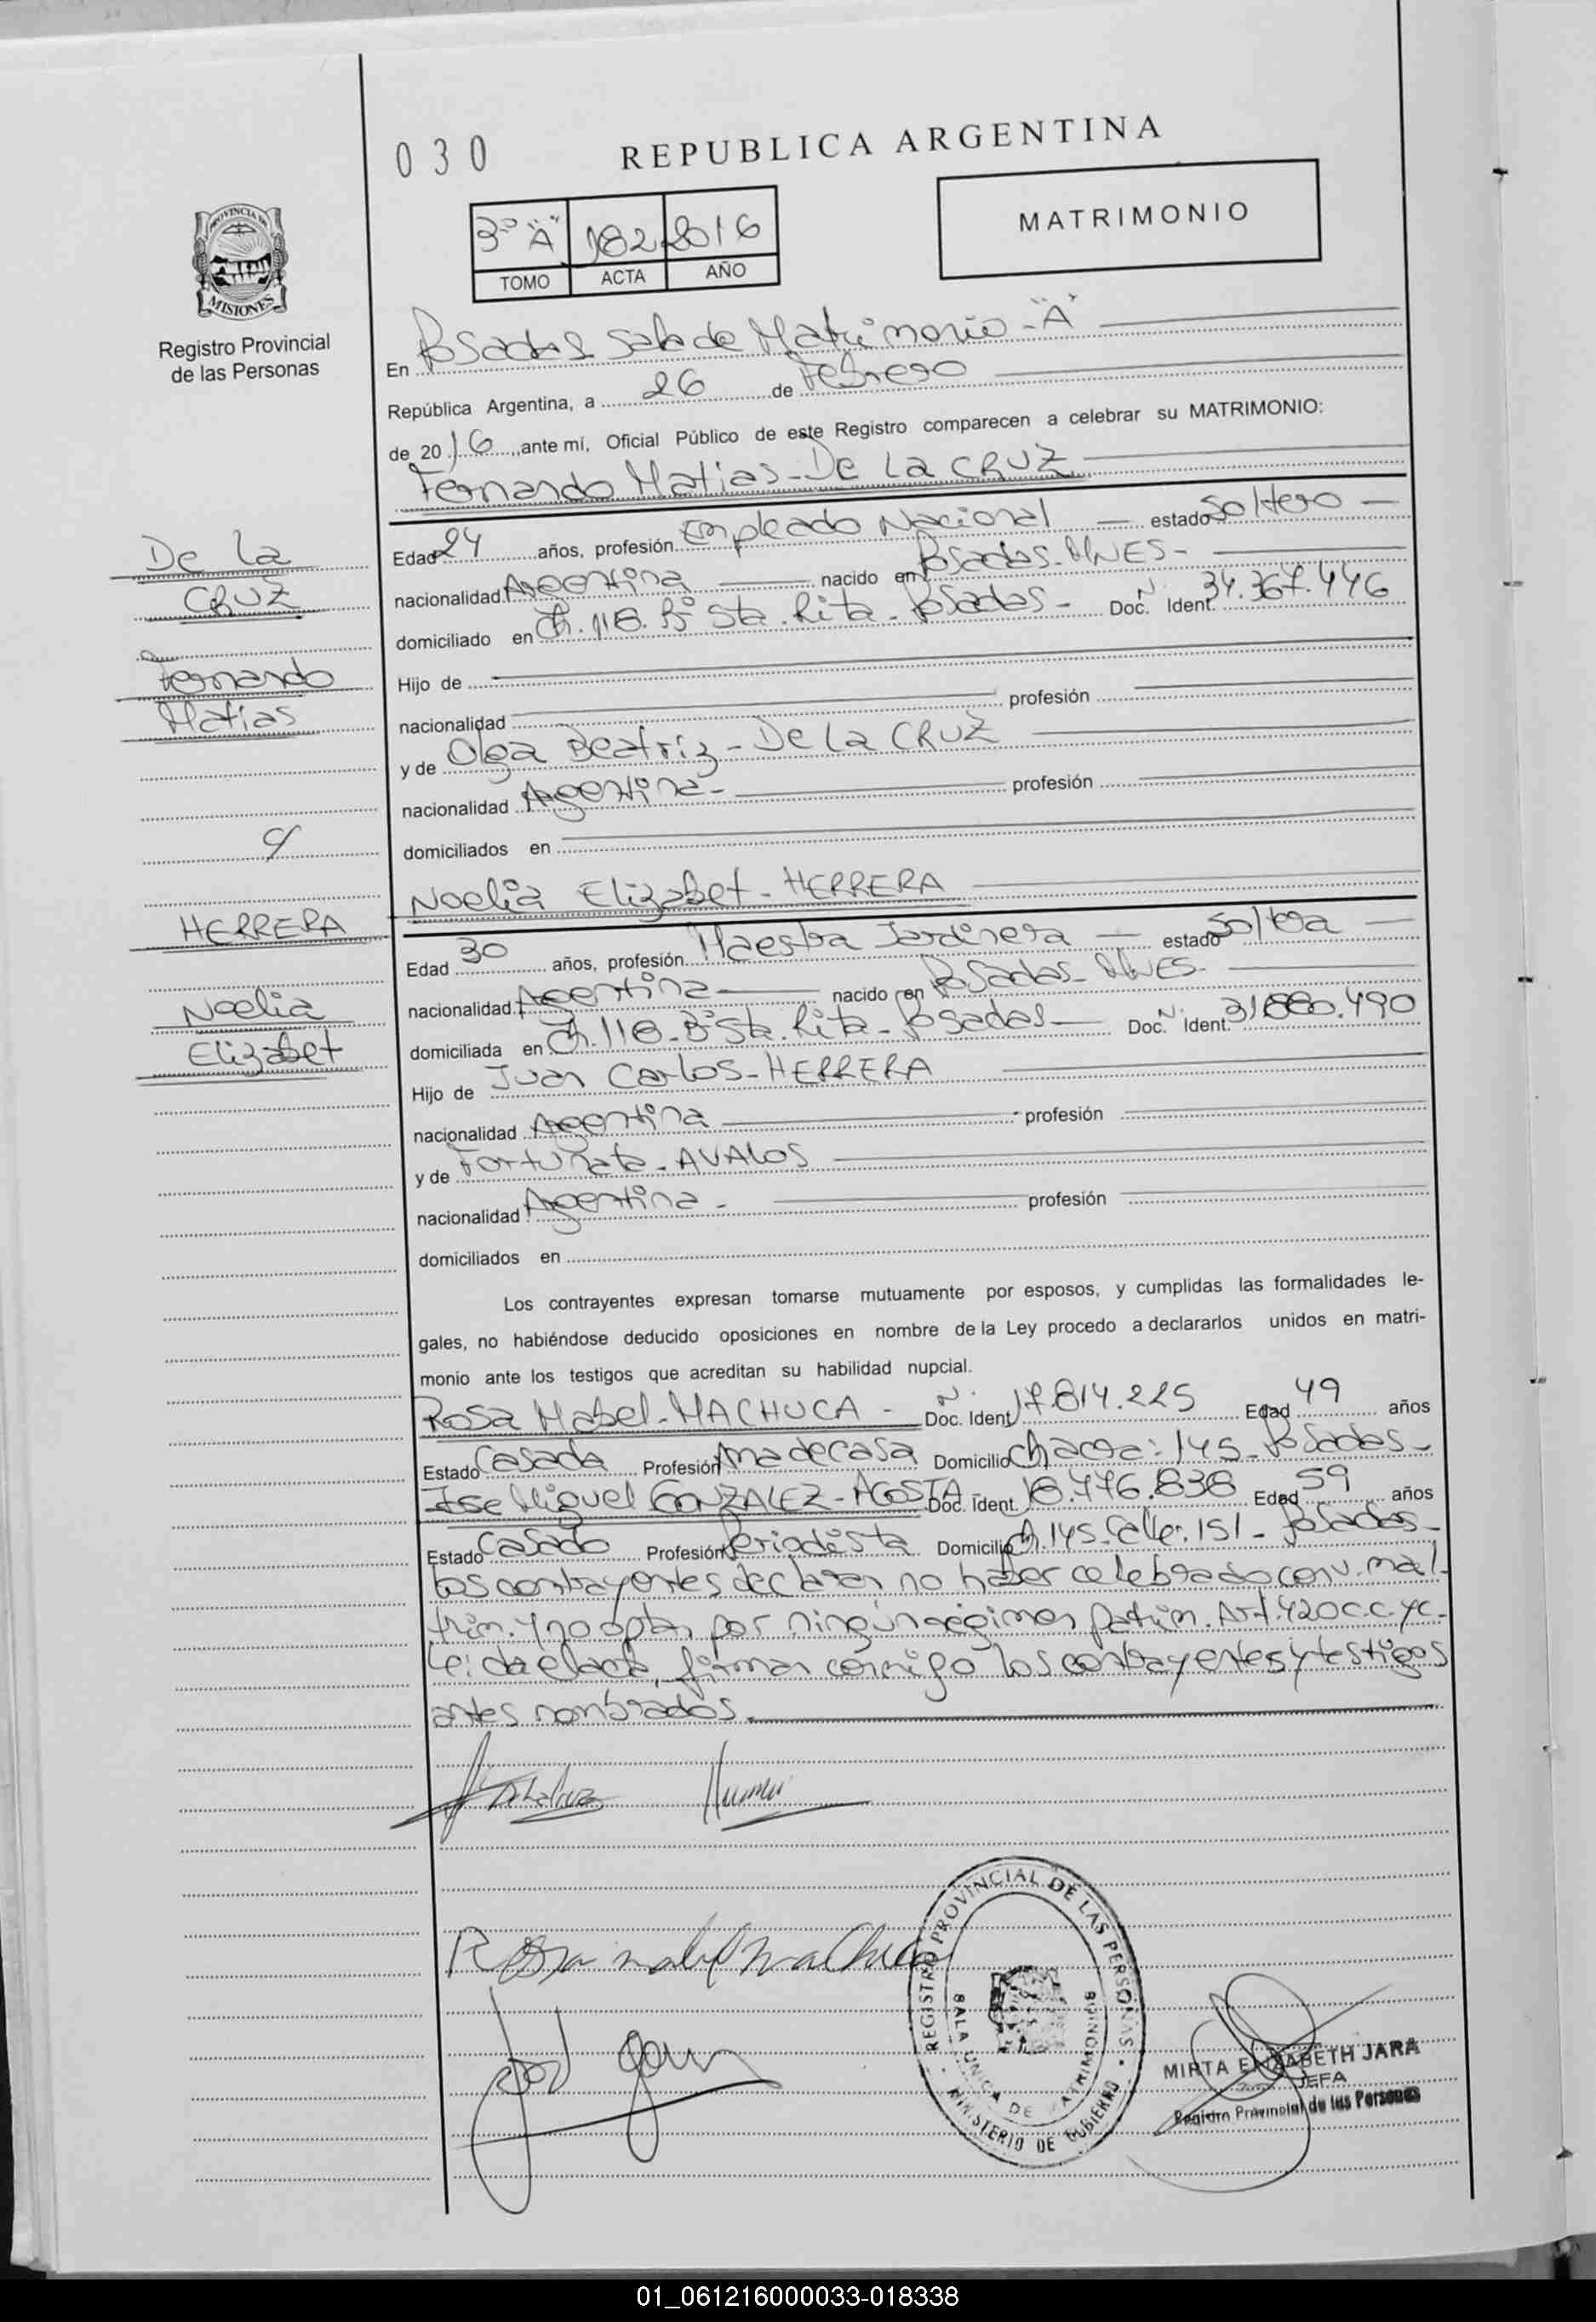 030
REPUBLICA ARGENTINA
PROVINCIA DE
MISIONES
Registro Provincial
de las Personas
3º "A" 182 2016
TOMO ACTA AÑO
MATRIMONIO
En Posadas Sala de Matrimonio - "A"
República Argentina, a 26 de Febrero
de 2016, ante mí, Oficial Público de este Registro comparecen a celebrar su MATRIMONIO:
Fernando Matias - De La CRUZ
De La
CRUZ
Fernando
Matias
Edad 24 años, profesión Empleado Nacional estado Soltero
nacionalidad Argentina nacido en Posadas - MNES -
domiciliado en Ch. 118. Bº Sta. Rita - Posadas - Doc. Ident. Nº 34.367.446
Hijo de
nacionalidad profesión
y de Olga Beatriz - De La CRUZ
nacionalidad Argentina - profesión
domiciliados en
c/
HERRERA
Noelia
Elizabet
Noelia Elizabet - HERRERA
Edad 30 años, profesión Maestra Jardinera estado Soltera
nacionalidad Argentina nacido en Posadas - MNES -
domiciliada en Ch. 118 - Bº Sta. Rita - Posadas - Doc. Ident. Nº 31.880.490
Hijo de Juan Carlos - HERRERA
nacionalidad Argentina profesión
y de Fortunata - AVALOS
nacionalidad Argentina - profesión
domiciliados en
Los contrayentes expresan tomarse mutuamente por esposos, y cumplidas las formalidades le-
gales, no habiéndose deducido oposiciones en nombre de la Ley procedo a declararlos unidos en matri-
monio ante los testigos que acreditan su habilidad nupcial.
Rosa Mabel - MACHUCA - Doc. Ident. Nº 17.814.225 Edad 49 años
Estado Casada Profesión Ama de casa Domicilio Chacra: 145 - Posadas -
Jose Miguel GONZALEZ - ACOSTA - Doc. Ident. 18.776.838 Edad 59 años
Estado Casado Profesión Periodista Domicilio Ch. 145. Calle: 151 - Posadas -
Los contrayentes declaran no haber celebrado conv. ma
trim. y no optan por ningún régimen patrim. Art. 420 C.C. y C. -
Leida el acta, firman conmigo los contrayentes y testigos
antes nombrados.
Rosa mabel machuca
REGISTRO PROVINCIAL DE LAS PERSONAS
SALA UNICA DE MATRIMONIOS
MINISTERIO DE GOBIERNO
MIRTA ELIZABETH JARA
JEFA
Registro Provincial de las Personas
01_061216000033-018338